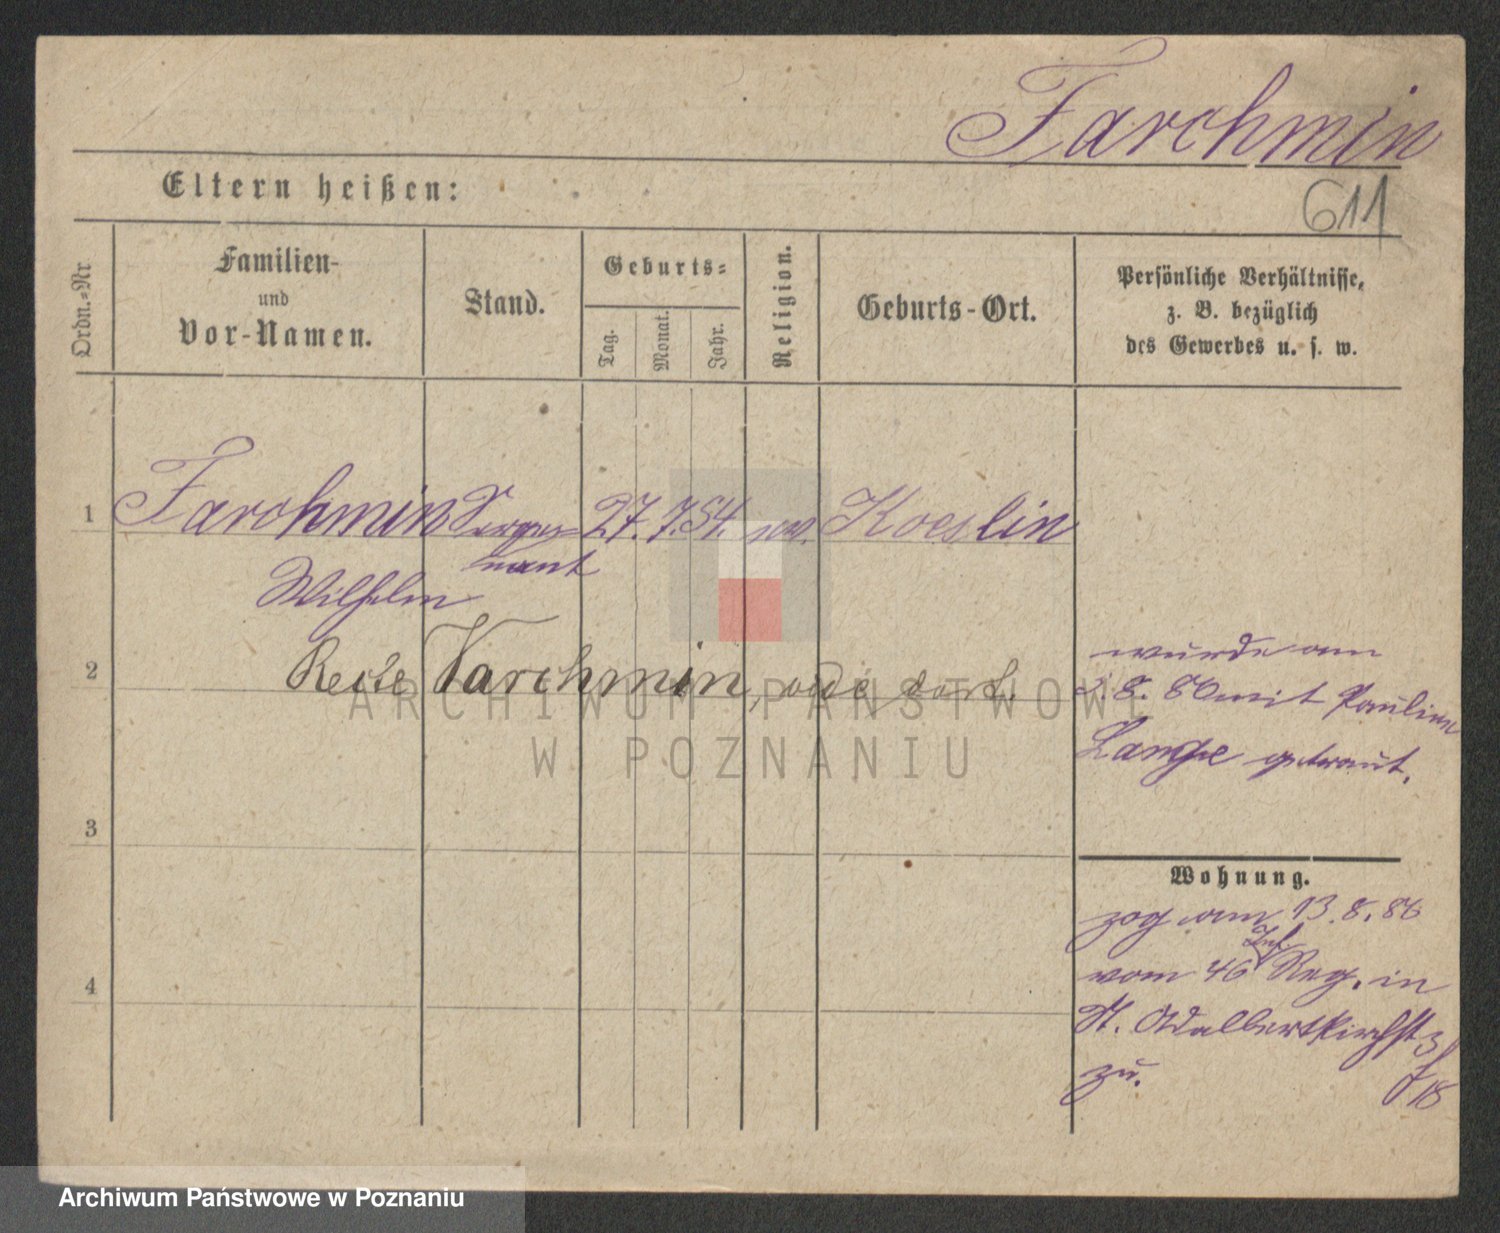 Farchmin
611
Eltern heißen:
Ordn.=Nr
Familien-
und
Vor-Namen.
Stand.
Geburts=
Tag.
Monat.
Jahr.
Religion.
Geburts-Ort.
Persönliche Verhältnisse,
z. B. bezüglich
des Gewerbes u. s. w.
1 Farchmin Serge= 27. 7. 54. Koeslin
Wilhelm
nant
2 Varchmin,
wurde am
8. 86 mit Pauline
Lange getraut.
3
4
Wohnung.
zog am 13. 8. 86
vom 46 Inf. Reg. in
St. Adalbertkirchst 3
zu.
ARCHIWUM PAŃSTWOWE
W POZNANIU
Archiwum Państwowe w Poznaniu